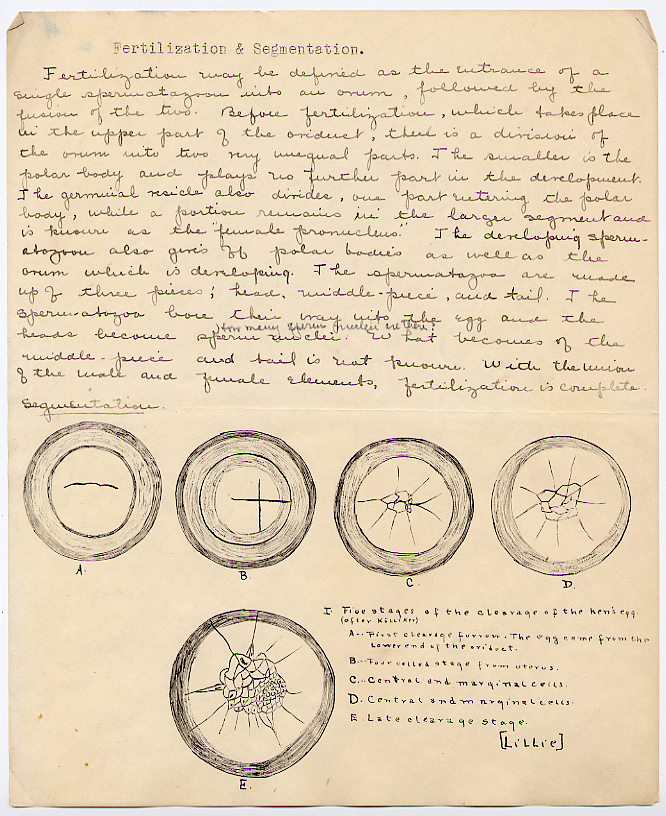 Fertilization & Segmentation.
Fertilization may be defined as the entrance of a
single spermatazoon into an ovum, followed by the
fusion of the two. Before fertilization, which takes place
in the upper part of the oviduct, there is a division of
the ovum into two very unequal parts. The smaller is the
polar body and plays no further part in the development.
The germinal vesicle also divides, one part entering the polar
body, while a portion remains in the larger segment and
is known as the "female pronucleus." The developing sperm-
atozoon also gives off polar bodies as well as the
ovum which is developing. The spermatazoa are made
up of three pieces; head, middle-piece, and tail. The
sperm-atozoa bore their way into the egg and the
how many sperm nuclei are there?
heads become sperm nuclei. What becomes of the
middle-piece and tail is not known. With the union
of the male and female elements, fertilization is complete.
Segmentation.
A.
B.
C.
D.
I. Five stages of the cleavage of the hen's egg.
(after Kölliker)
A.. First cleavage furrow. The egg came from the
lower end of the oviduct.
B.. Four celled stage from uterus.
C.. Central and marginal cells.
D. Central and marginal cells.
E. Late cleavage stage.
[Lillie]
E.